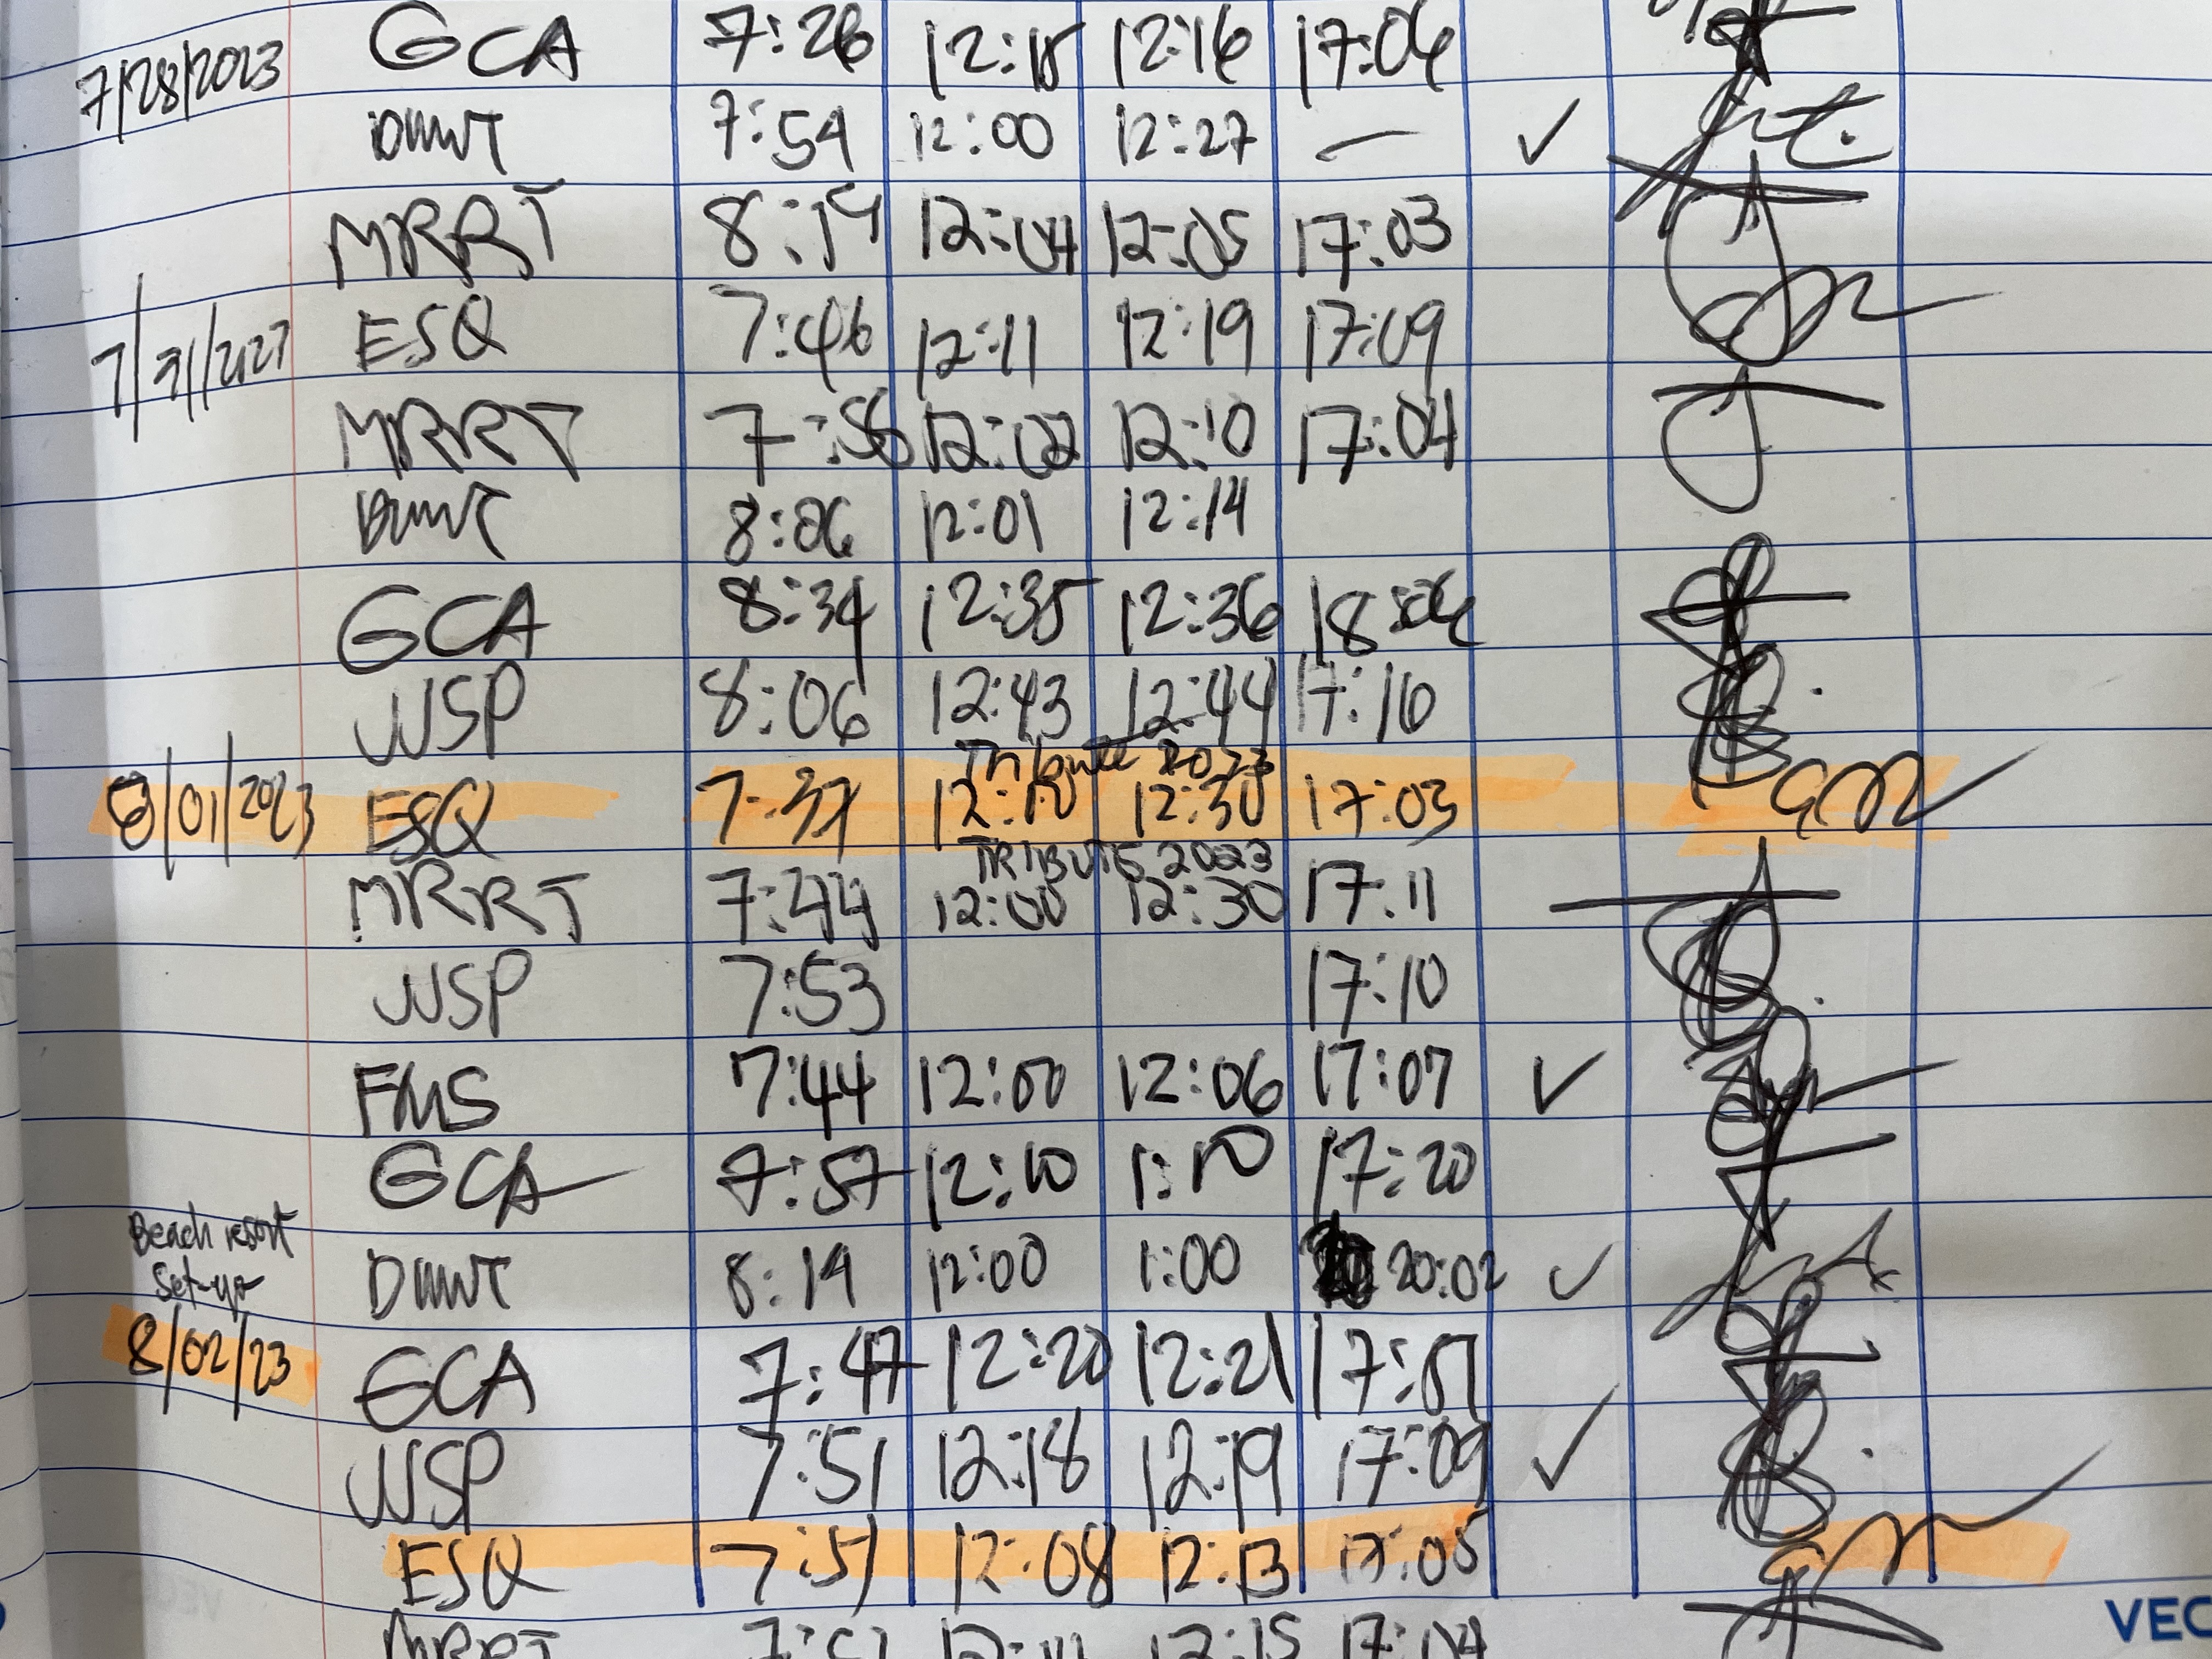 7/28/2023 GCA 7:26 12:15 12:16 17:06
DMWT 7:54 12:00 12:27 — ✓
MRRT 8:14 12:04 12:05 17:03
7/31/2023 ESQ 7:46 12:11 12:19 17:09
MRRT 7:56 12:02 12:10 17:04
DMWT 8:06 12:01 12:14
GCA 8:34 12:35 12:36 18:06
JJSP 8:06 12:43 12:44 17:10
Tribute 2023
8/01/2023 ESQ 7:37 12:10 12:30 17:03
TRIBUTE 2023
MRRT 7:44 12:00 12:30 17:11
JJSP 7:53 17:10
FMS 7:44 12:00 12:06 17:07 ✓
GCA 7:57 12:10 1:10 17:20
Beach resort
Set-up
DMWT 8:19 12:00 1:00 20:02 ✓
8/02/23 GCA 7:47 12:20 12:21
JJSP 7:51 12:18 12:19 17:09 ✓
ESQ 7:51 12:08 12:13 17:05
MRRT 12:15 17:04
VEC